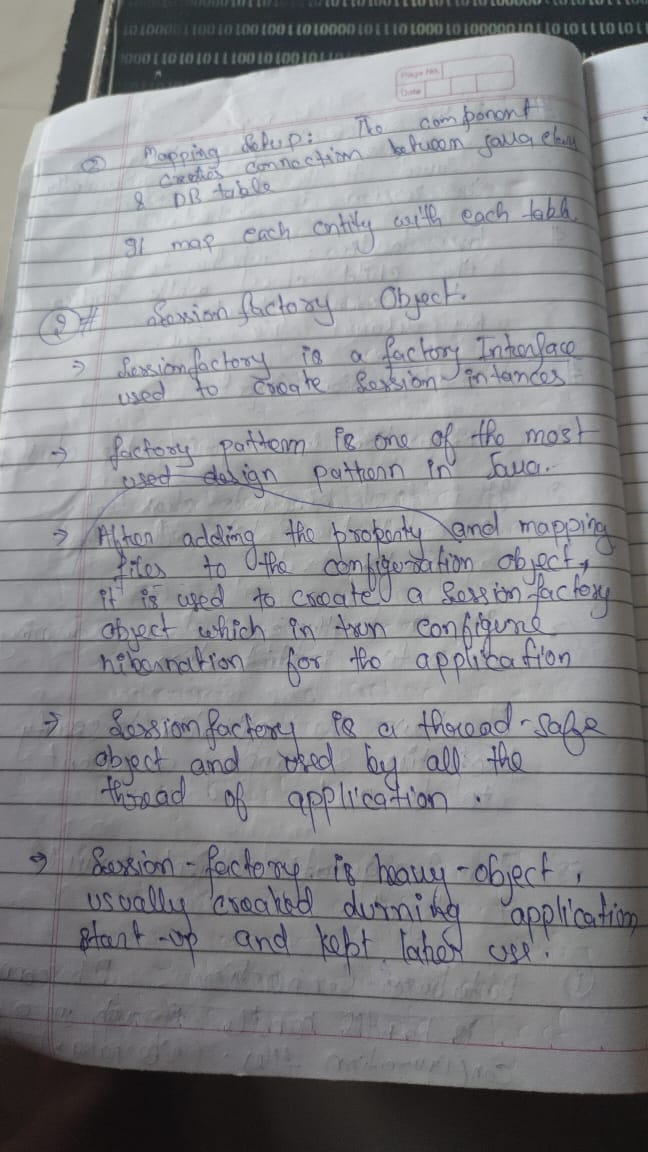 101010001100101001001001101000010111010001010000010110101110101
0001101010111001010010
Page No.
Date
② Mapping Setup: The component
creates connection between Java class
& DB table
It map each entity with each table.
② # Session factory Object.
⇒ Sessionfactory is a factory Interface
used to create Session intances
→ factory pattern is one of the most
used design pattern in Java.
⇒ After adding the property and mapping
files to the configuration object,
it is used to create a Session factory
object which in turn configure
hibernation for the application
→ Session factory is a thread-safe
object and used by all the
thread of application.
⇒ Session-factory is heavy-object,
usually created durning application
start-up and kept later use.